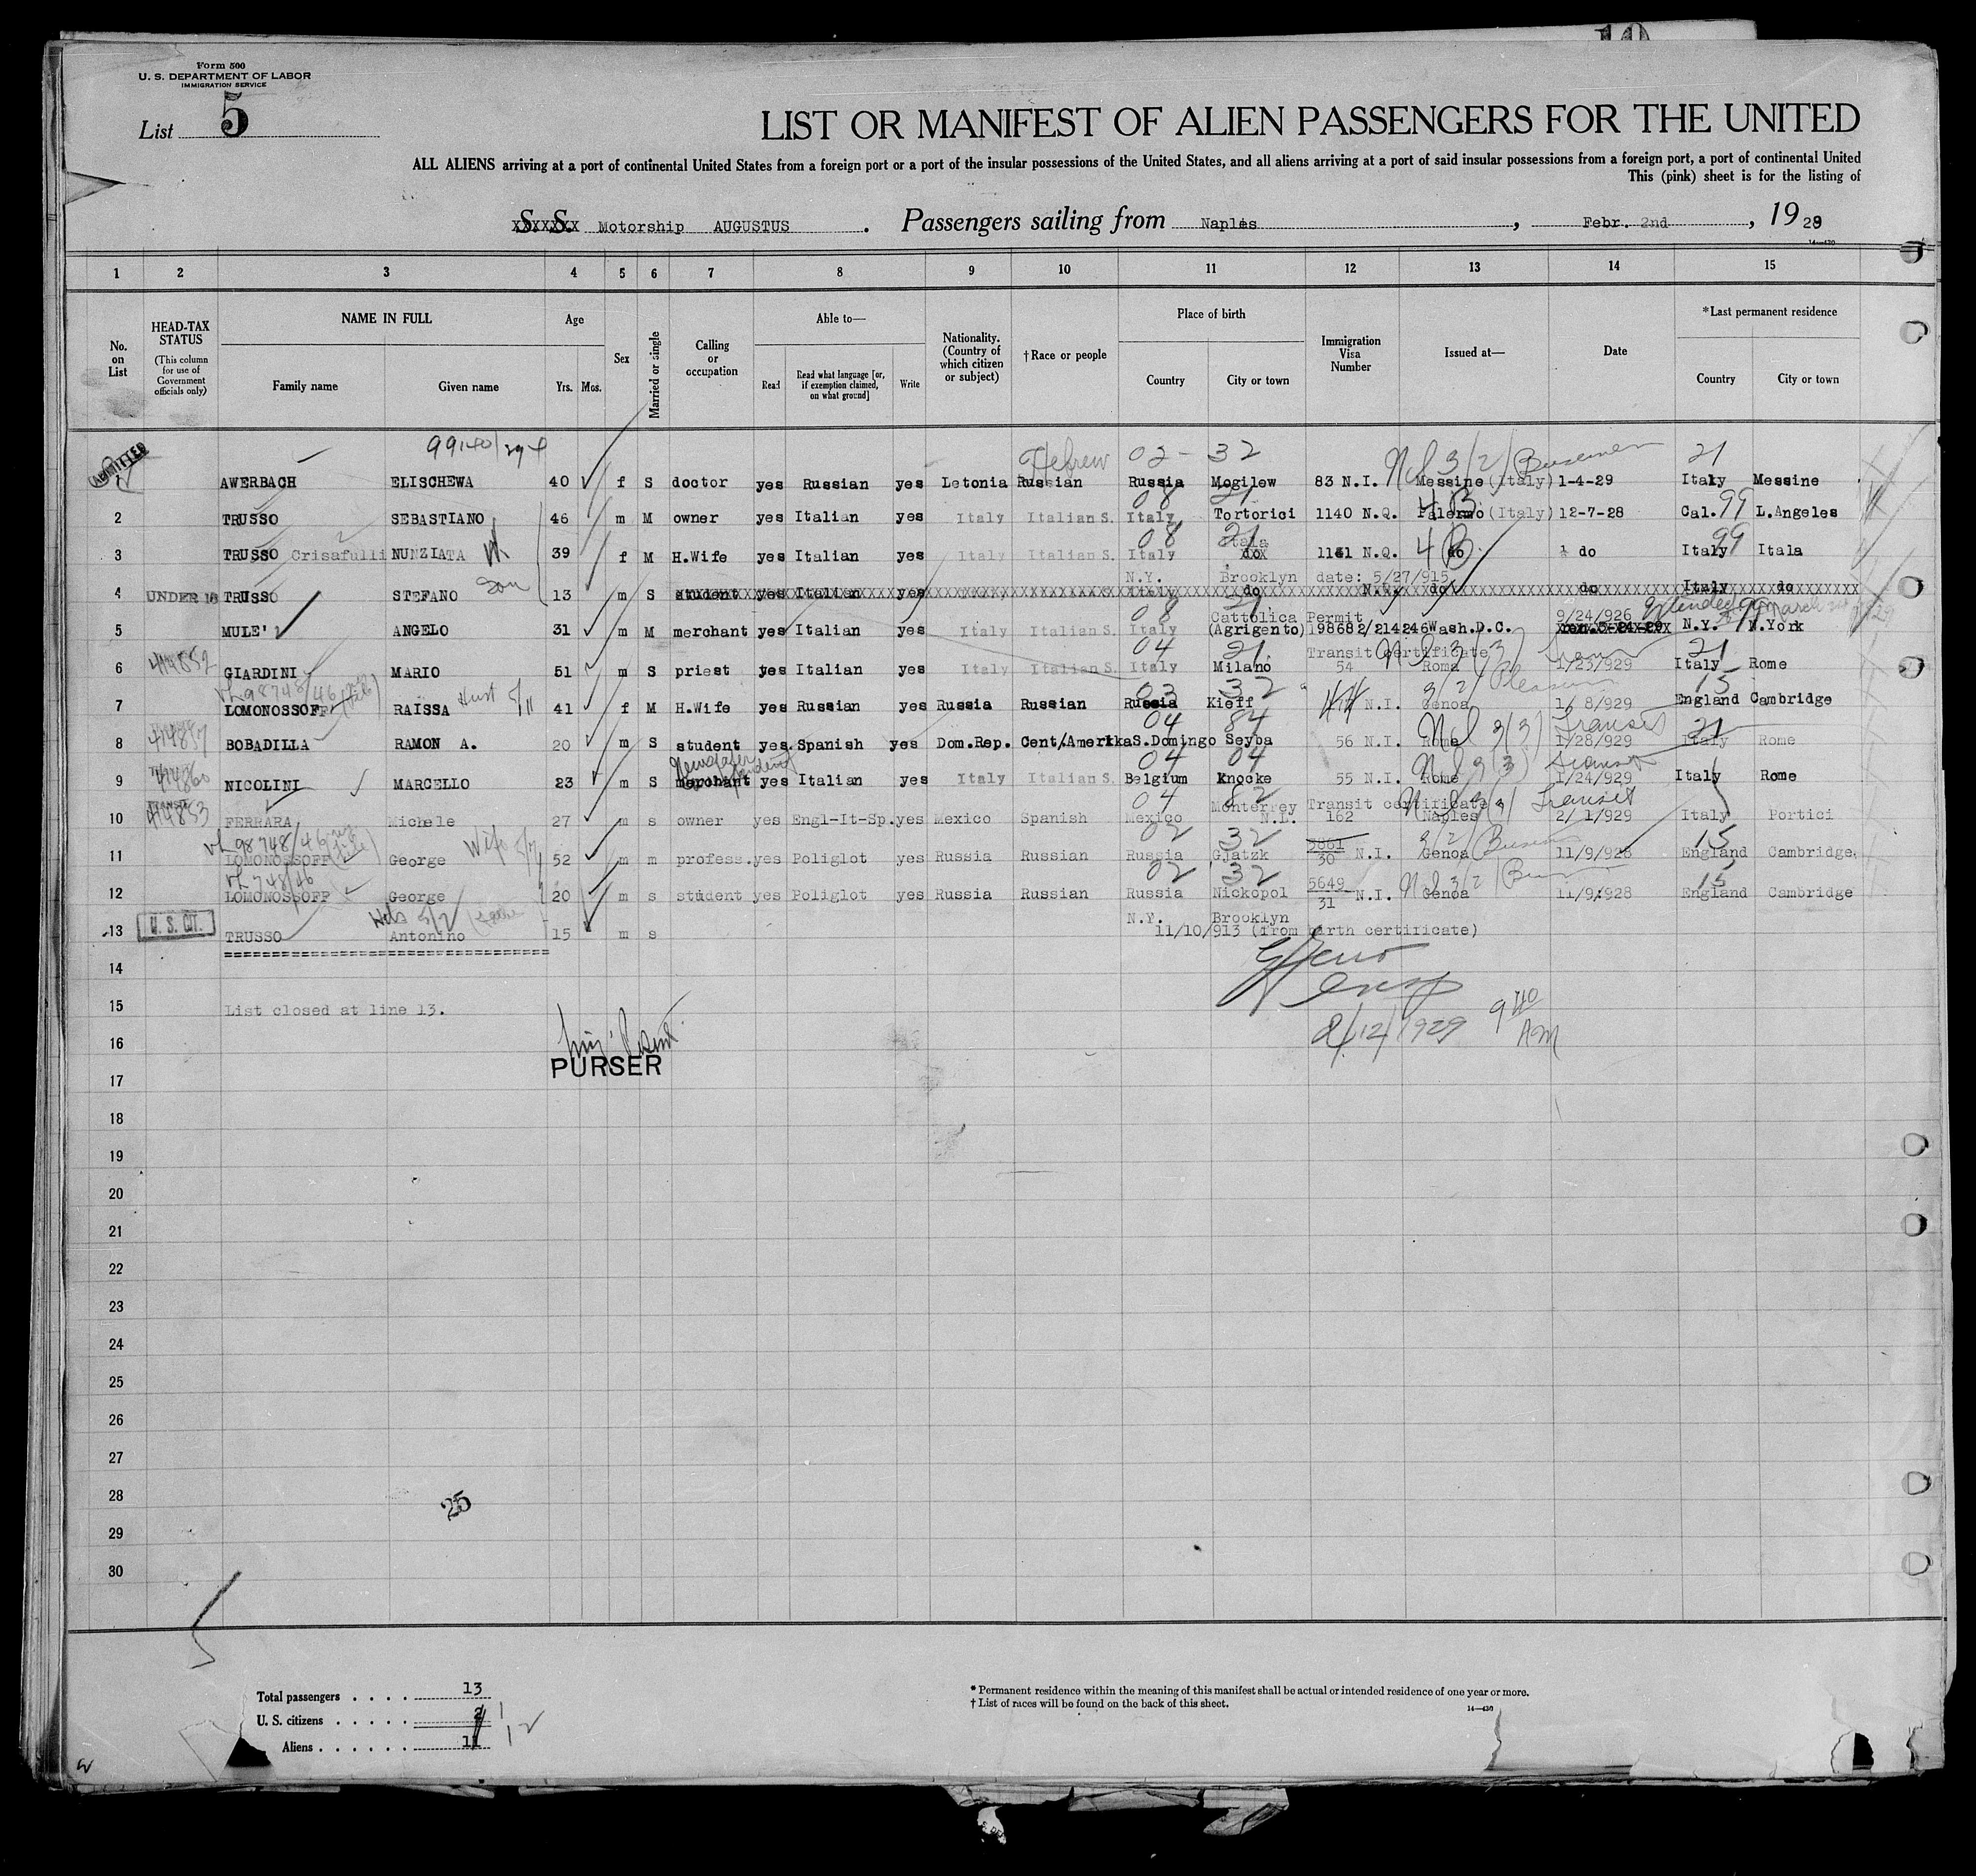 Form 500
U. S. DEPARTMENT OF LABOR
IMMIGRATION SERVICE
List 5
LIST OR MANIFEST OF ALIEN PASSENGERS FOR THE UNITED
ALL ALIENS arriving at a port of continental United States from a foreign port or a port of the insular possessions of the United States, and all aliens arriving at a port of said insular possessions from a foreign port, a port of continental United
This (pink) sheet is for the listing of
S. S. Motorship AUGUSTUS. Passengers sailing from Naples, Febr. 2nd, 1929
14—430
1 2 3 4 5 6 7 8 9 10 11 12 13 14 15
No. on List
HEAD-TAX STATUS
(This column for use of Government officials only)
NAME IN FULL
Family name Given name
Age
Yrs. Mos.
Sex
Married or single
Calling or occupation
Able to—
Read
Read what language [or, if exemption claimed, on what ground]
Write
Nationality. (Country of which citizen or subject)
†Race or people
Place of birth
Country City or town
Immigration Visa Number
Issued at—
Date
*Last permanent residence
Country City or town
99140/294 Hebrew 02- 32 3/2/ 21
ADMITTED AWERBACH ELISCHEWA 40 f S doctor yes Russian yes Letonia Russian Russia Mogilew 83 N.I. Messine (Italy) 1-4-29 Italy Messine
08 21 4B 99
2 TRUSSO SEBASTIANO 46 m M owner yes Italian yes Italy Italian S. Italy Tortorici 1140 N.Q. Palermo (Italy) 12-7-28 Cal. L.Angeles
08 21 Itala 4B 99
3 TRUSSO Crisafulli NUNZIATA 39 f M H.Wife yes Italian yes Italy Italian S. Italy do 1141 N.Q. do do Italy Itala
son N.Y. Brooklyn date: 5/27/915
4 UNDER 16 TRUSSO STEFANO 13 m S student yes Italian yes Italy do N.Q. do do Italy do
08 21 Cattolica Permit 9/24/926 Extended March 99
5 MULE' ANGELO 31 m M merchant yes Italian yes Italy Italian S. Italy (Agrigento) 198682/214246 Wash.D.C. N.Y. N.York
414852 04 21 Transit certificate 3(3) 21
6 GIARDINI MARIO 51 m S priest yes Italian yes Italy Italian S. Italy Milano 54 Roma 1/23/929 Italy Rome
98748/46 Hust 5/11 02 32 3/2/ Pleasure 15
7 LOMONOSSOFF RAISSA 41 f M H.Wife yes Russian yes Russia Russian Russia Kieff N.I. Genoa 1/ 8/929 England Cambridge
04 84 3(3) Transit 21
8 BOBADILLA RAMON A. 20 m S student yes Spanish yes Dom.Rep. Cent/Amerika S.Domingo Seyba 56 N.I. Rome 1/28/929 Italy Rome
Newspaper 04 04 3(3) Transit
9 NICOLINI MARCELLO 23 m S merchant yes Italian yes Italy Italian S. Belgium Knocke 55 N.I. Rome 1/24/929 Italy Rome
414853 04 82 Monterrey Transit certificate Transit
10 FERRARA Michele 27 m s owner yes Engl-It-Sp. yes Mexico Spanish Mexico N.L. 162 Naples 2/ 1/929 Italy Portici
98748/46 Wife 5/7 02 32 5861 3/2/ 15
11 LOMONOSSOFF George 52 m m profess. yes Poliglot yes Russia Russian Russia Gjatzk 30 N.I. Genoa 11/9/928 England Cambridge
748/46 02 32 5649 3/2/ 15
12 LOMONOSSOFF George 20 m s student yes Poliglot yes Russia Russian Russia Nickopol 31 N.I. Genoa 11/9/928 England Cambridge
U. S. CIT. N.Y. Brooklyn
13 TRUSSO Antonino 15 m s 11/10/913 (from birth certificate)
14
15 List closed at line 13.
2/12/1929 9 40 AM
16
PURSER
17
18
19
20
21
22
23
24
25
26
27
28
25
29
30
Total passengers 13
U. S. citizens 2 1
Aliens 11 12
* Permanent residence within the meaning of this manifest shall be actual or intended residence of one year or more.
† List of races will be found on the back of this sheet.
14—430